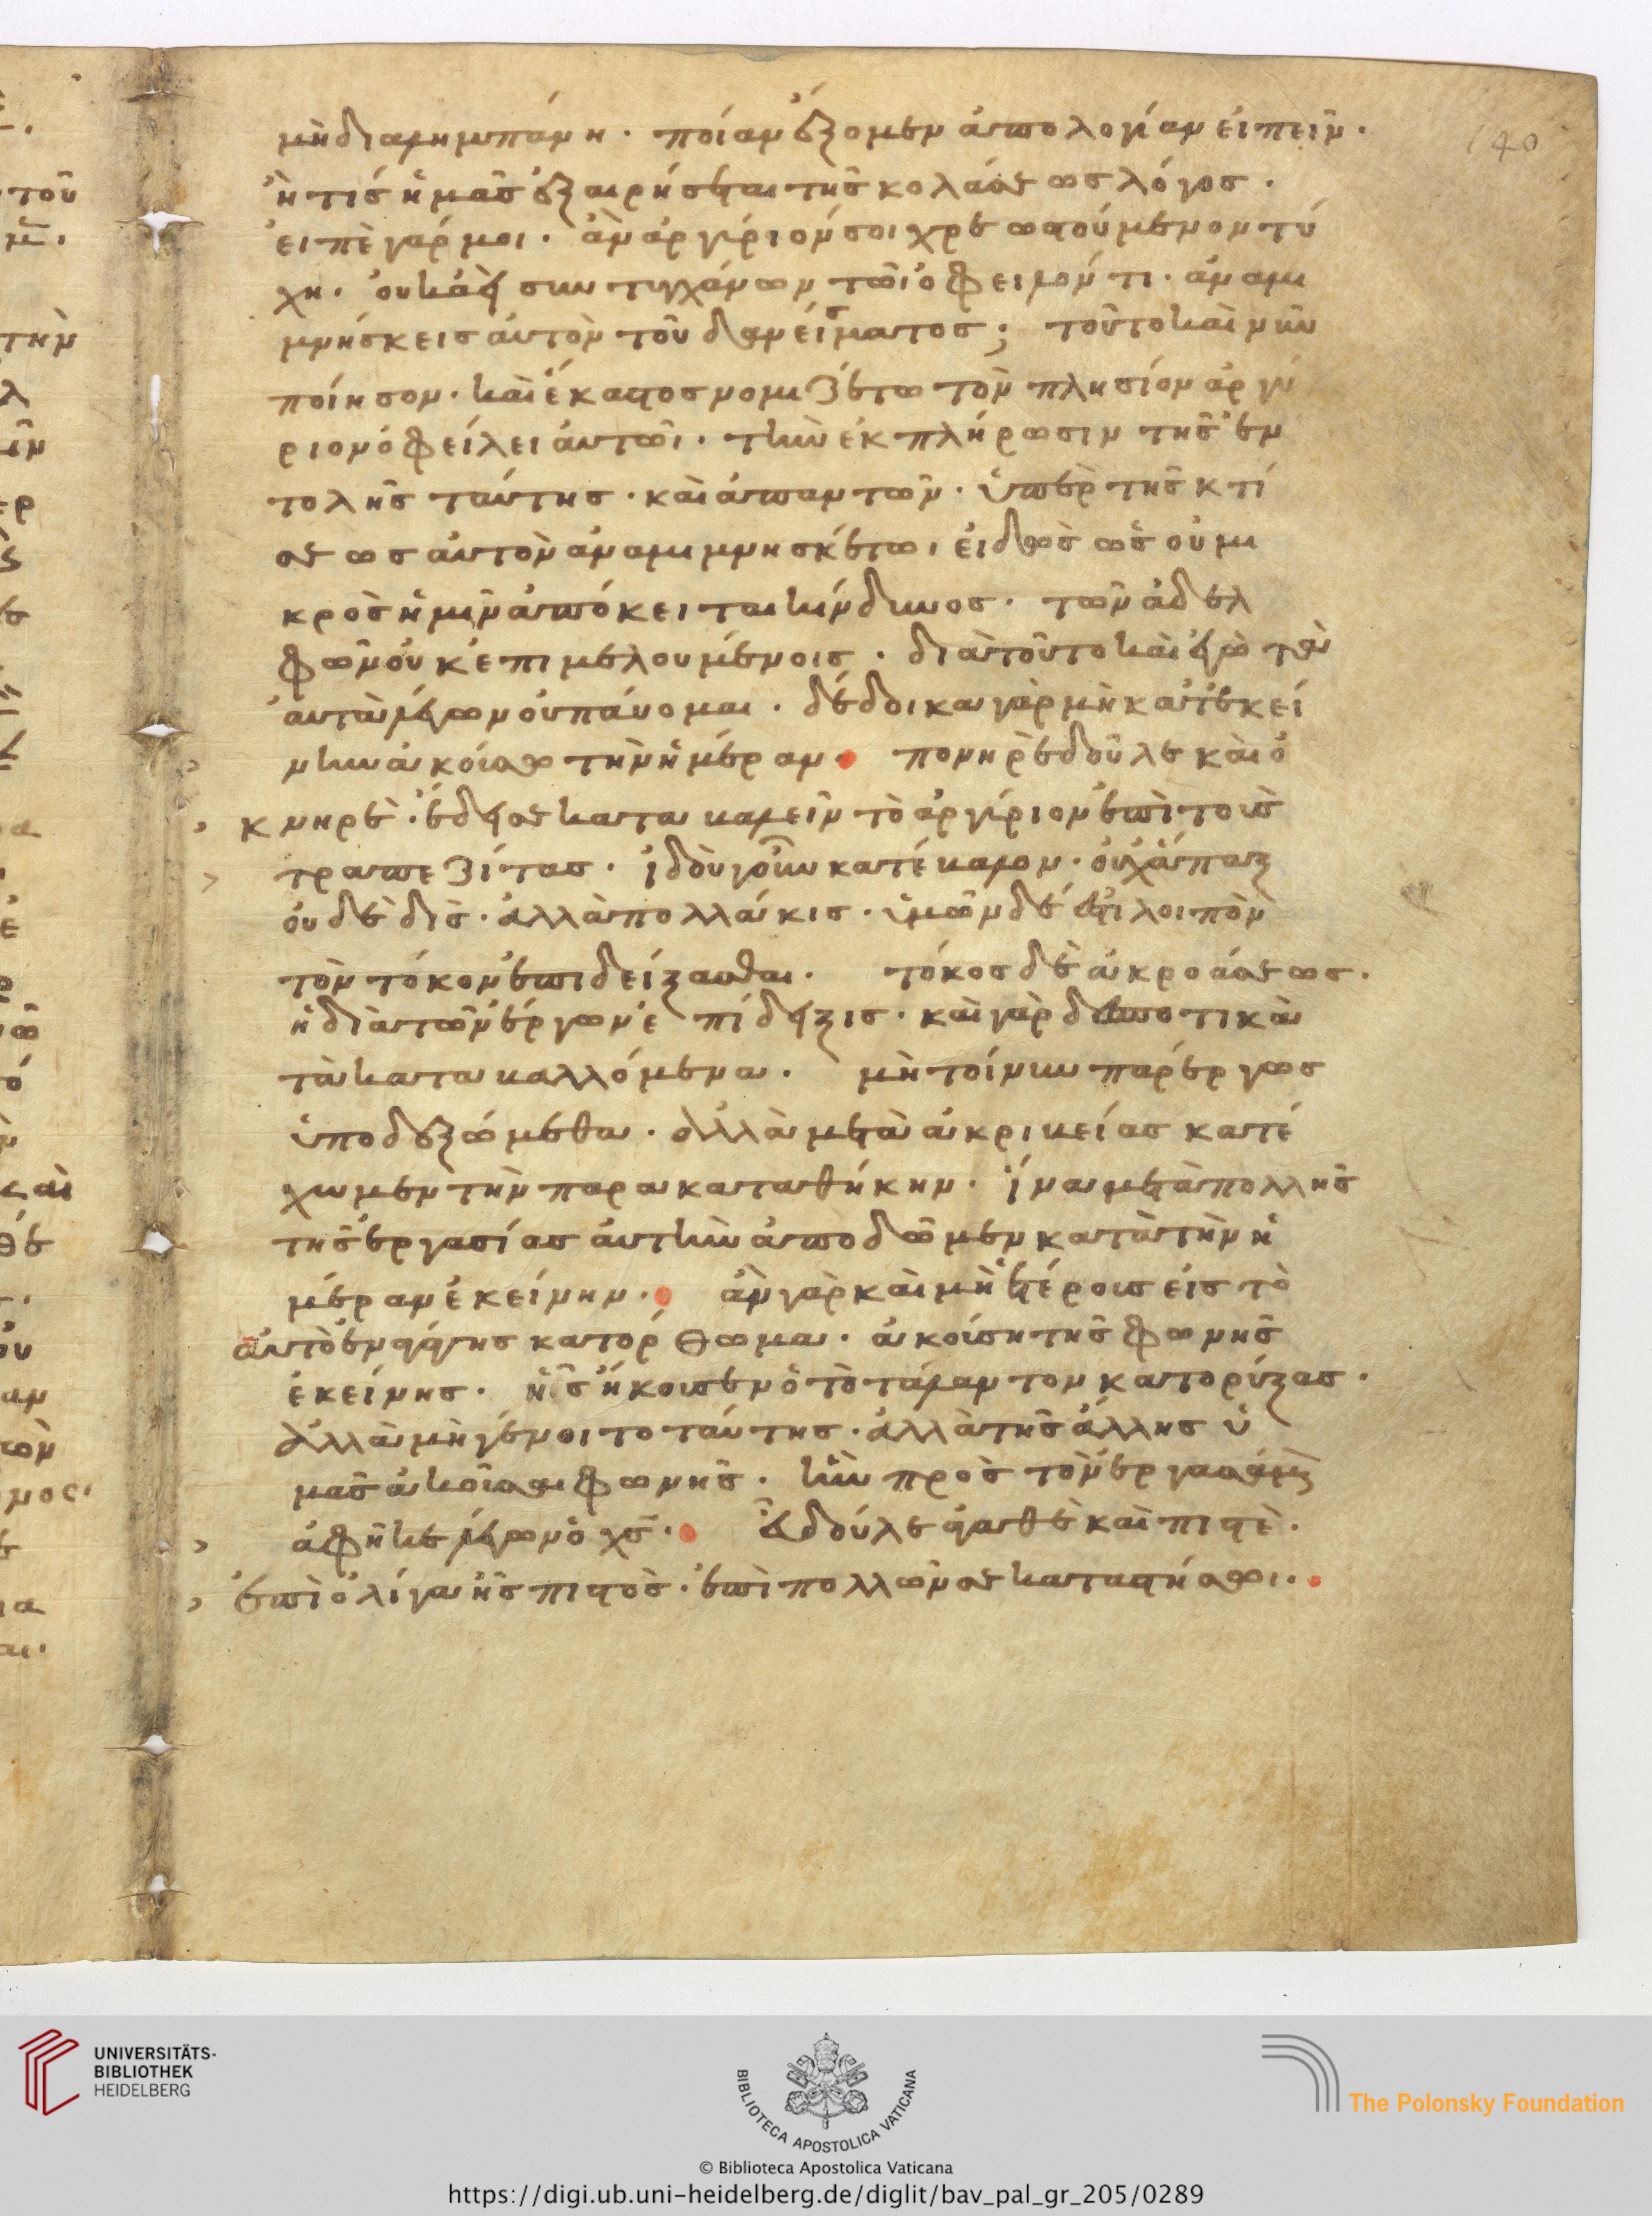 140
μὴ διαλημπάνη · ποίαν ἕξομεν ἀπολογίαν εἰπεῖν ·
ἢ τίς ἡμᾶς ἐξαιρήσεται τῆς κολάσεως λόγος ·
εἰπὲ γάρ μοι · ἂν ἀργύριόν σοι χρεωστούμενον τύ
χη · οὐκ ἀεὶ συντυγχάνων τῶι ὀφείλοντι · ἀναμι
μνήσκεις αὐτὸν τοῦ δανείσματος ; τοῦτο καὶ νῦν
ποίησον · καὶ ἕκαστος νομιζέτω τὸν πλησίον ἀργύ
ριον ὀφείλει αὐτῶι · τὴν ἐκπλήρωσιν τῆς ἐν
τολῆς ταύτης · καὶ ἀπαντῶν · ὑπὲρ τῆς κτί
σεως αὐτὸν ἀναμιμνησκέτω , εἰδὼς ὡς οὐ μι
κρὸς ἡμῖν ἀπόκειται κίνδυνος · τῶν ἀδελ
φῶν οὐκ ἐπιμελουμένοις · διὰ τοῦτο καὶ ἐγὼ τὰ
αὐτὰ λέγων οὐ παύομαι · δέδοικα γὰρ μὴ κατ' ἐκεί
νην ἀκούσω τὴν ἡμέραν · πονηρὲ δοῦλε καὶ ὀ
κνηρέ · ἔδει σε καταβαλεῖν τὸ ἀργύριον ἐπὶ τοὺς
τραπεζίτας · ἰδοὺ γοῦν κατέβαλον · οὐχ ἅπαξ
οὐδὲ δὶς · ἀλλὰ πολλάκις · ὑμῶν δέ ἐστι λοιπὸν
τὸν τόκον ἐπιδείξασθαι · τόκος δὲ ἀκροάσεως ·
ἡ διὰ τῶν ἔργων ἐπίδειξις · καὶ γὰρ δεσποτικὰ
τὰ καταβαλλόμενα · μὴ τοίνυν παρέργως
ὑποδεξώμεθα · ἀλλὰ μετὰ ἀκριβείας κατέ
χωμεν τὴν παρακαταθήκην · ἵνα μετὰ πολλῆς
τῆς ἐργασίας αὐτὴν ἀποδῶμεν κατὰ τὴν ἡ
μέραν ἐκείνην · ἂν γὰρ καὶ μὴ ἑτέρους εἰς τὸ
αὐτὸ ἐναγάγης κατόρθωμα · ἀκούση τῆς φωνῆς
ἐκείνης · ἧς ἤκουσεν ὁ τὸ τάλαντον κατορύξας ·
ἀλλὰ μὴ γένοιτο ταύτης · ἀλλὰ τῆς ἄλλης ὑ
μᾶς ἀκοῦσαι φωνῆς · ἣν πρὸς τὸν ἐργασάμενον
ἀφῆκε λέγων ὁ χς · εὖ δοῦλε ἀγαθὲ καὶ πιστὲ ·
ἐπὶ ὀλίγα ἦς πιστὸς · ἐπὶ πολλῶν σε καταστήσω ·
UNIVERSITÄTS-
BIBLIOTHEK
HEIDELBERG
BIBLIOTECA APOSTOLICA VATICANA
The Polonsky Foundation
© Biblioteca Apostolica Vaticana
https://digi.ub.uni-heidelberg.de/diglit/bav_pal_gr_205/0289